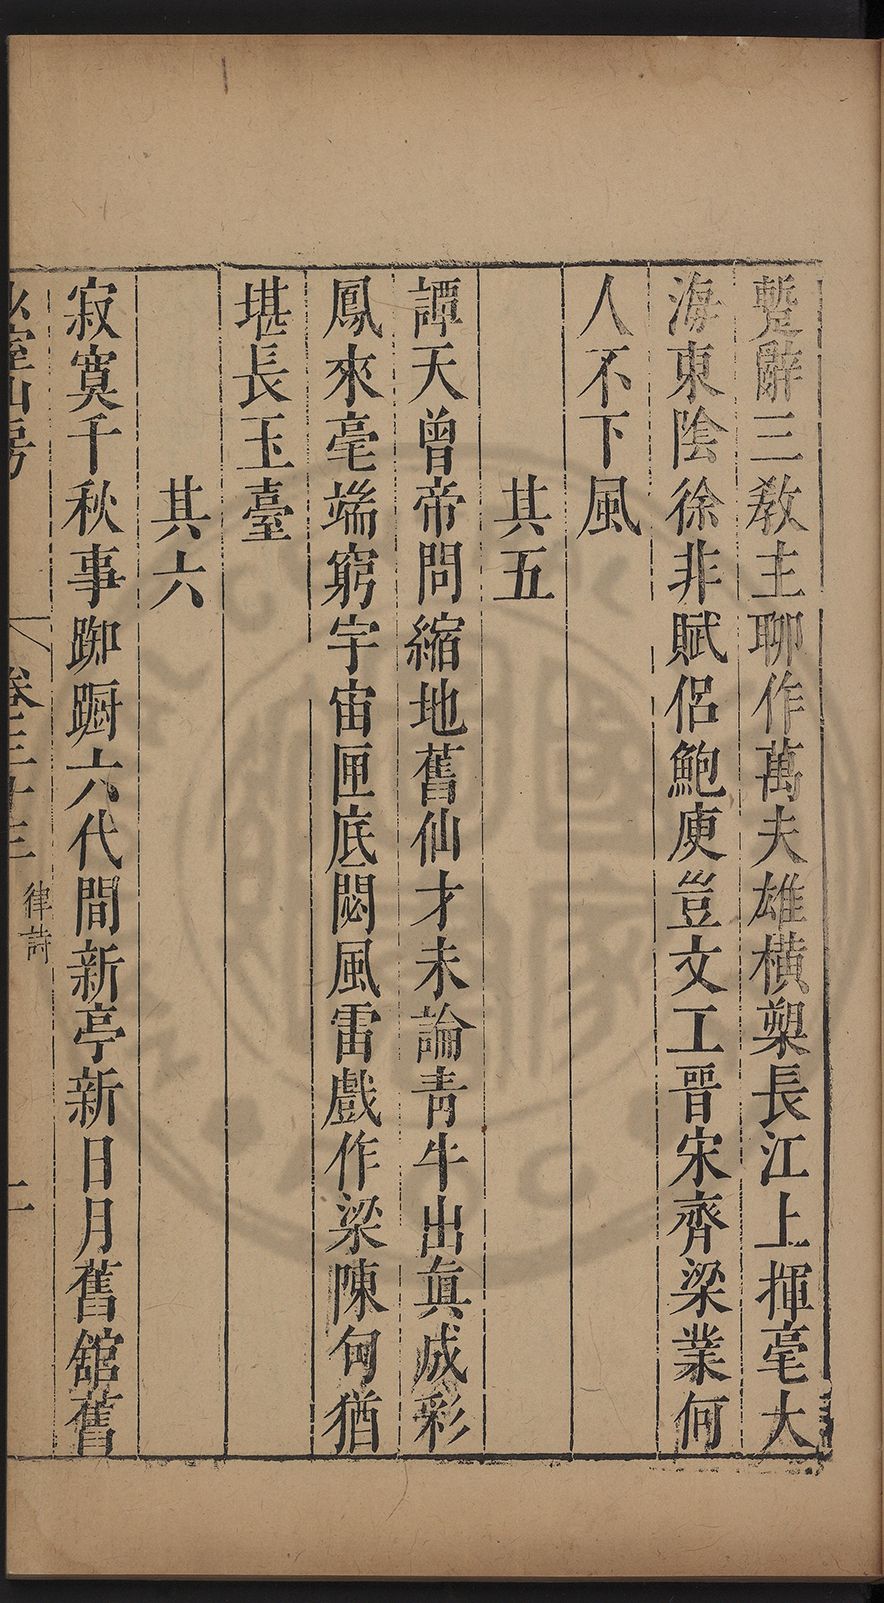 蹔辭三敎主聊作萬夫雄橫槊長江上揮毫大
海東陰徐非賦侶鮑庾豈文工晉宋齊梁業何
人不下風
其五
譚天曾帝問縮地舊仙才未論靑牛出眞成彩
鳳來毫端窮宇宙匣底閟風雷戲作梁陳句猶
堪長玉臺
其六
寂寞千秋事踟蹰六代間新亭新日月舊舘舊
室山房
卷三十三
律詩
二